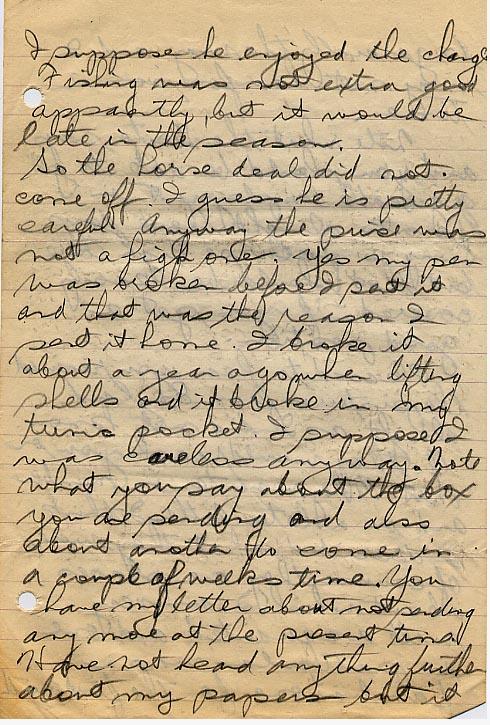 I suppose he enjoyed the change
Fishing was not extra good
apparntly, but it would be
late in the season.
So the horse deal did not
come off. I guess he is pretty
careful. Anyway the price was
not a high one. Yes my pen
was broken before I sent it
and that was the reason I
sent it home. I broke it
about a year ago when lifting
shells and it broke in my
tunic pocket. I supposed I
was careless anyway. Note
what you say about the box
you are sending and also
about another to come in
a couple of weeks time. You
have my letter about not sending
any more at the present time
Have not heard anything further
about my papers but it